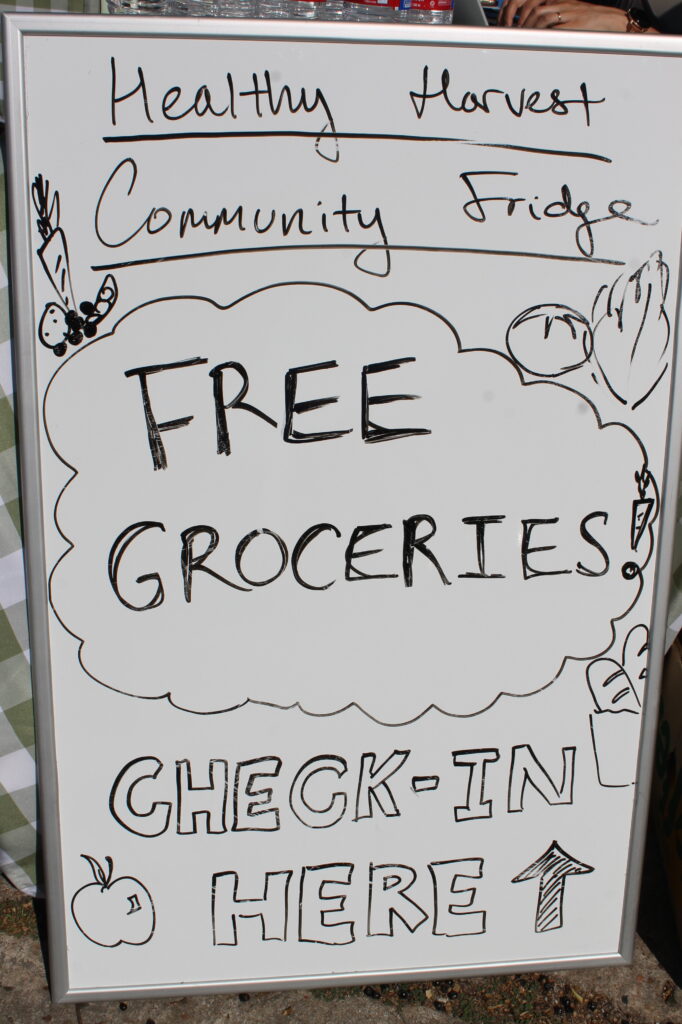 Healthy Harvest
Community Fridge
FREE
GROCERIES!
CHECK-IN
HERE